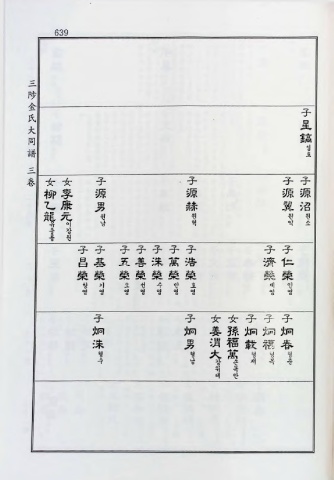 639
三陟金氏大同譜 三卷
子 呈鎬 정호
子 源沼 원소
子 源翼 원익
子 源赫 원혁
子 源男 원남
女 李康元 이강원
女 柳乙龍 유을룡
子 仁榮 인영
子 濟榮 제영
子 浩榮 호영
子 萬榮 만영
子 洙榮 수영
子 善榮 선영
子 五榮 오영
子 基榮 기영
子 昌榮 창영
子 炯春 형춘
子 炯福 형복
子 炯載 형재
女 孫福萬 손복만
女 姜渭大 강위대
子 炯男 형남
子 炯洙 형수